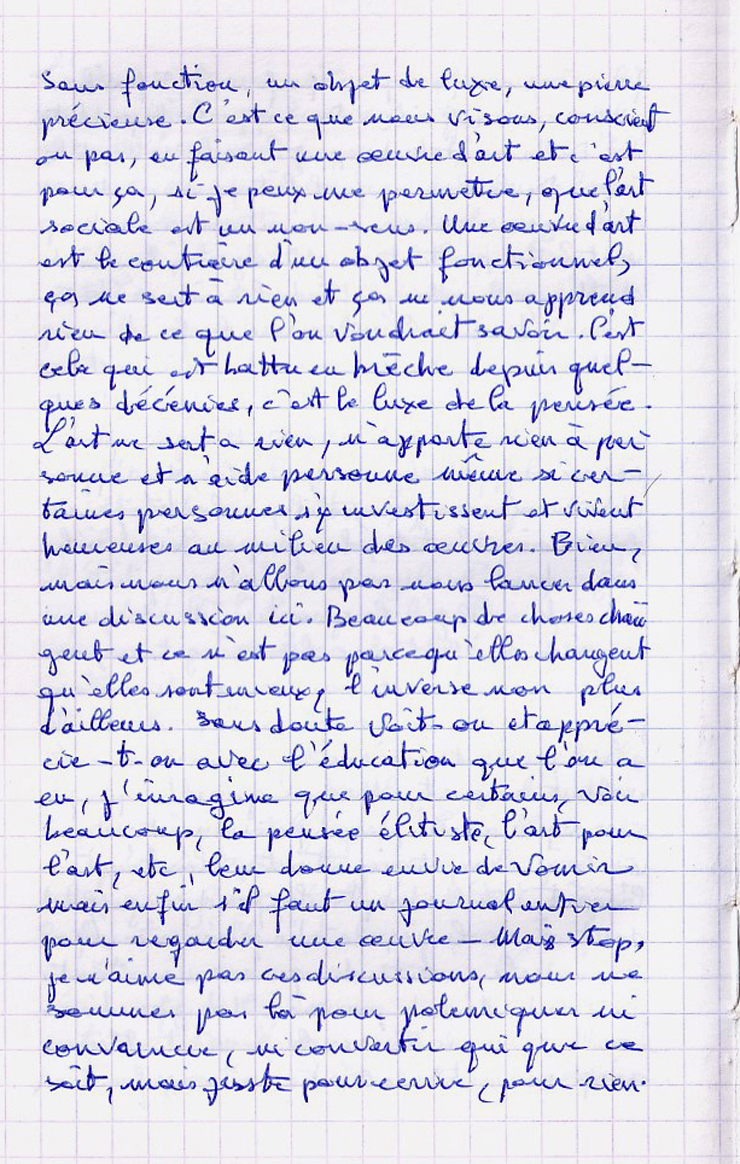 sans fonction, un objet de luxe, une pierre
précieuse. C'est ce que nous visons, conscient
ou pas, en faisant une œuvre d'art et c'est
pour ça, si je peux me permettre, que l'art
sociale est un non-sens. Une œuvre d'art
est le contraire d'un objet fonctionnel,
ça ne sert à rien et ça ne nous apprend
rien de ce que l'on voudrait savoir. C'est
cela qui est battu en brèche depuis quel-
ques décénies, c'est le luxe de la pensée.
L'art ne sert a rien, n'apporte rien à per
sonne et n'aide personne même si cer-
taines personnes s'y investissent et vivent
heureuses au milieu des œuvres. Bien,
mais nous n'allons pas nous lancer dans
une discussion ici. Beaucoup de choses chan
gent et ce n'est pas parcequ'elles changent
qu'elles sont mieux, l'inverse non plus
d'ailleurs. Sans doute voit-on et appré-
cie-t-on avec l'éducation que l'on a
eu, j'imagine que pour certains, voir
beaucoup, la pensée élitiste, l'art pour
l'art, etc, leur donne envie de vomir
mais enfin s'il faut un journal entier
pour regarder une œuvre - Mais stop,
je n'aime pas ces discussions, nous ne
sommes pas là pour polemiquer ni
convaincre, ni convertir qui que ce
soit, mais juste pour ecrire, pour rien.